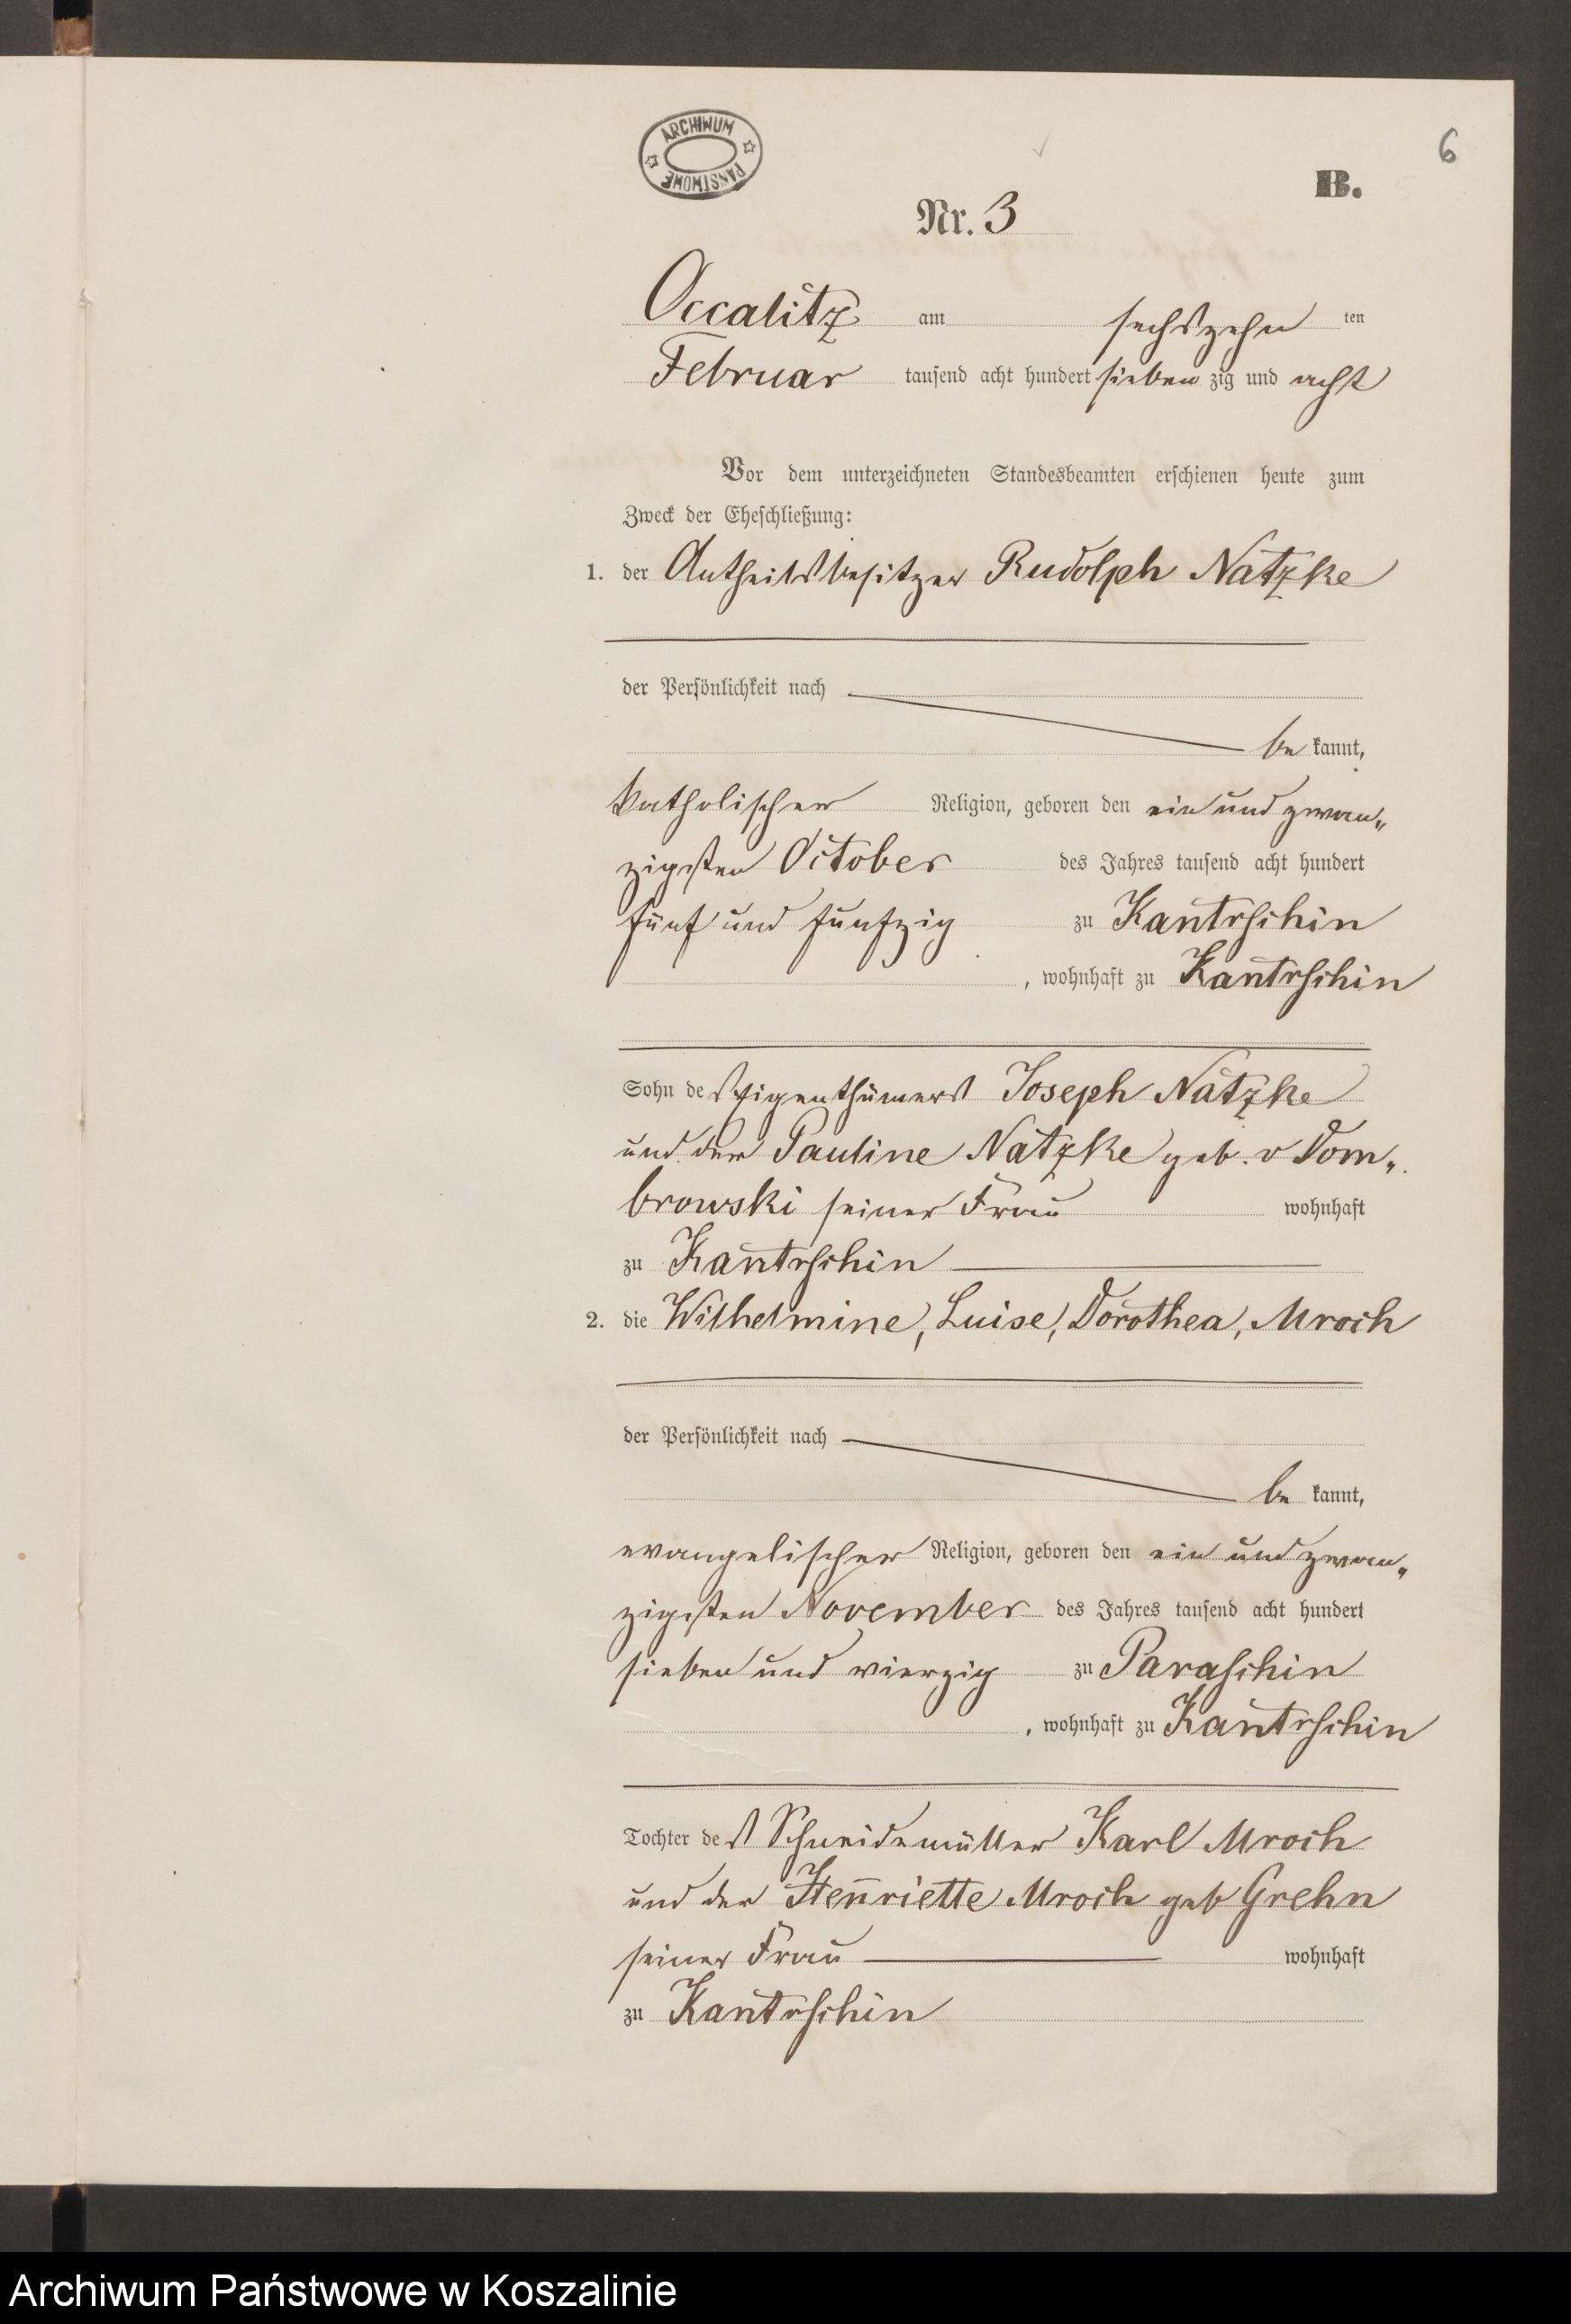 ARCHIWUM
PAŃSTWOWE
6
B.
Nr. 3
Occalitz am sechszehn ten
Februar tausend acht hundert sieben zig und acht
Vor dem unterzeichneten Standesbeamten erschienen heute zum
Zweck der Eheschließung:
1. der Antheilsbesitzer Rudolph Natzke
der Persönlichkeit nach
be kannt,
katholischer Religion, geboren den ein und zwan„
zigsten October des Jahres tausend acht hundert
fünf und funfzig zu Kantrschin
, wohnhaft zu Kantrschin
Sohn des Eigenthümers Joseph Natzke
und der Pauline Natzke geb. v Dom„
browski seiner Frau wohnhaft
zu Kantrschin
2. die Wilhelmine, Luise, Dorothea, Mroch
der Persönlichkeit nach
be kannt,
evangelischer Religion, geboren den ein und zwan„
zigsten November des Jahres tausend acht hundert
sieben und vierzig zu Paraschin
, wohnhaft zu Kantrschin
Tochter des Schneidemüller Karl Mroch
und der Henriette Mroch geb Grehn
seiner Frau wohnhaft
zu Kantrschin
Archiwum Państwowe w Koszalinie